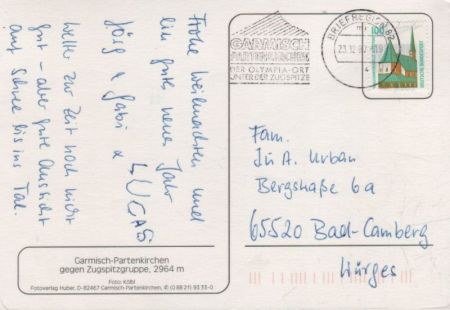 Frohe Weihnachten und
ein gutes neues Jahr
Jörg & Gabi &
LUCAS
Wetter zur Zeit noch nicht
gut - aber gute Aussicht
auf Schnee bis ins Tal.
Garmisch-Partenkirchen
gegen Zugspitzgruppe, 2964 m
Foto: Kölbl
Fotoverlag Huber, D-82467 Garmisch-Partenkirchen, ✆ (0 88 21) 93 33-0
GARMISCH
PARTENKIRCHEN
DER OLYMPIA-ORT
UNTER DER ZUGSPITZE
BRIEFREGION 82
23.12.
100
DEUTSCHE BUNDESPOST
Fam.
A. Urban
Bergstraße 6a
65520 Bad-Camberg
Würges